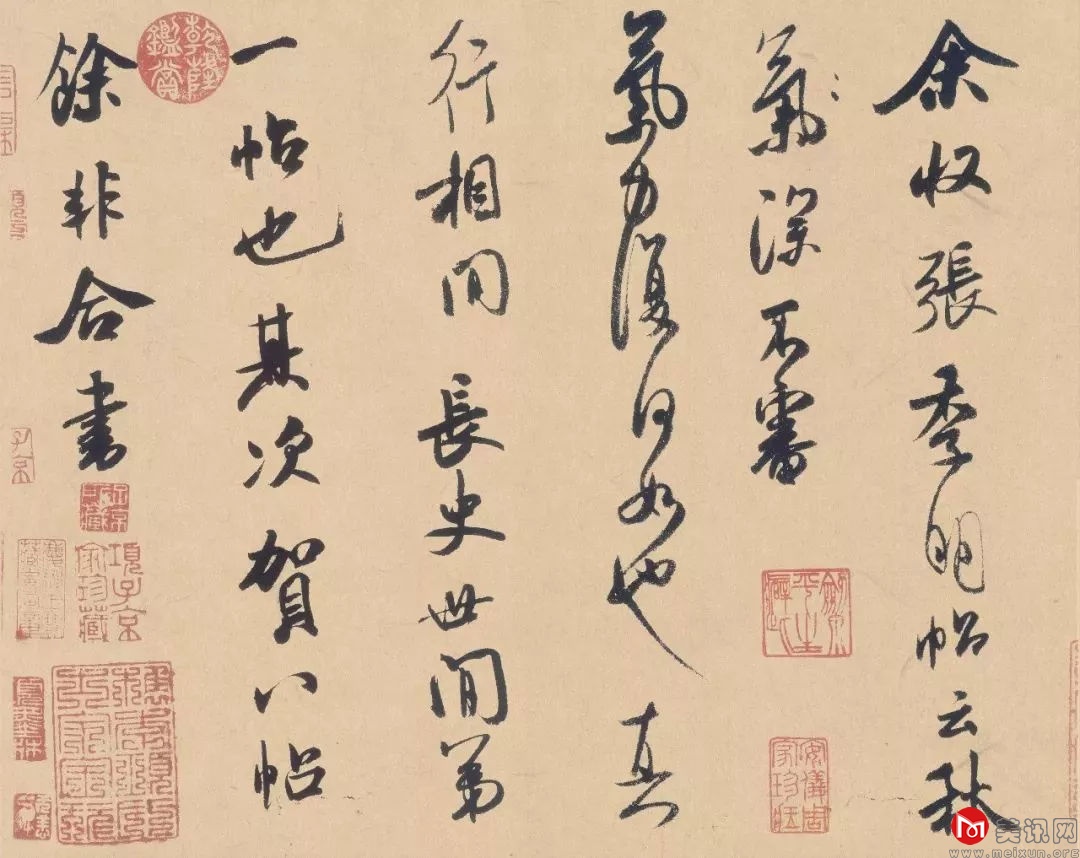 余收張季明帖云秋
氣深不審
氣力復何如也真
行相間長史世間第
一帖也其次賀八帖
餘非合書
乾隆鑑賞
項子京家珍藏
子京
美讯网
www.meixun.org